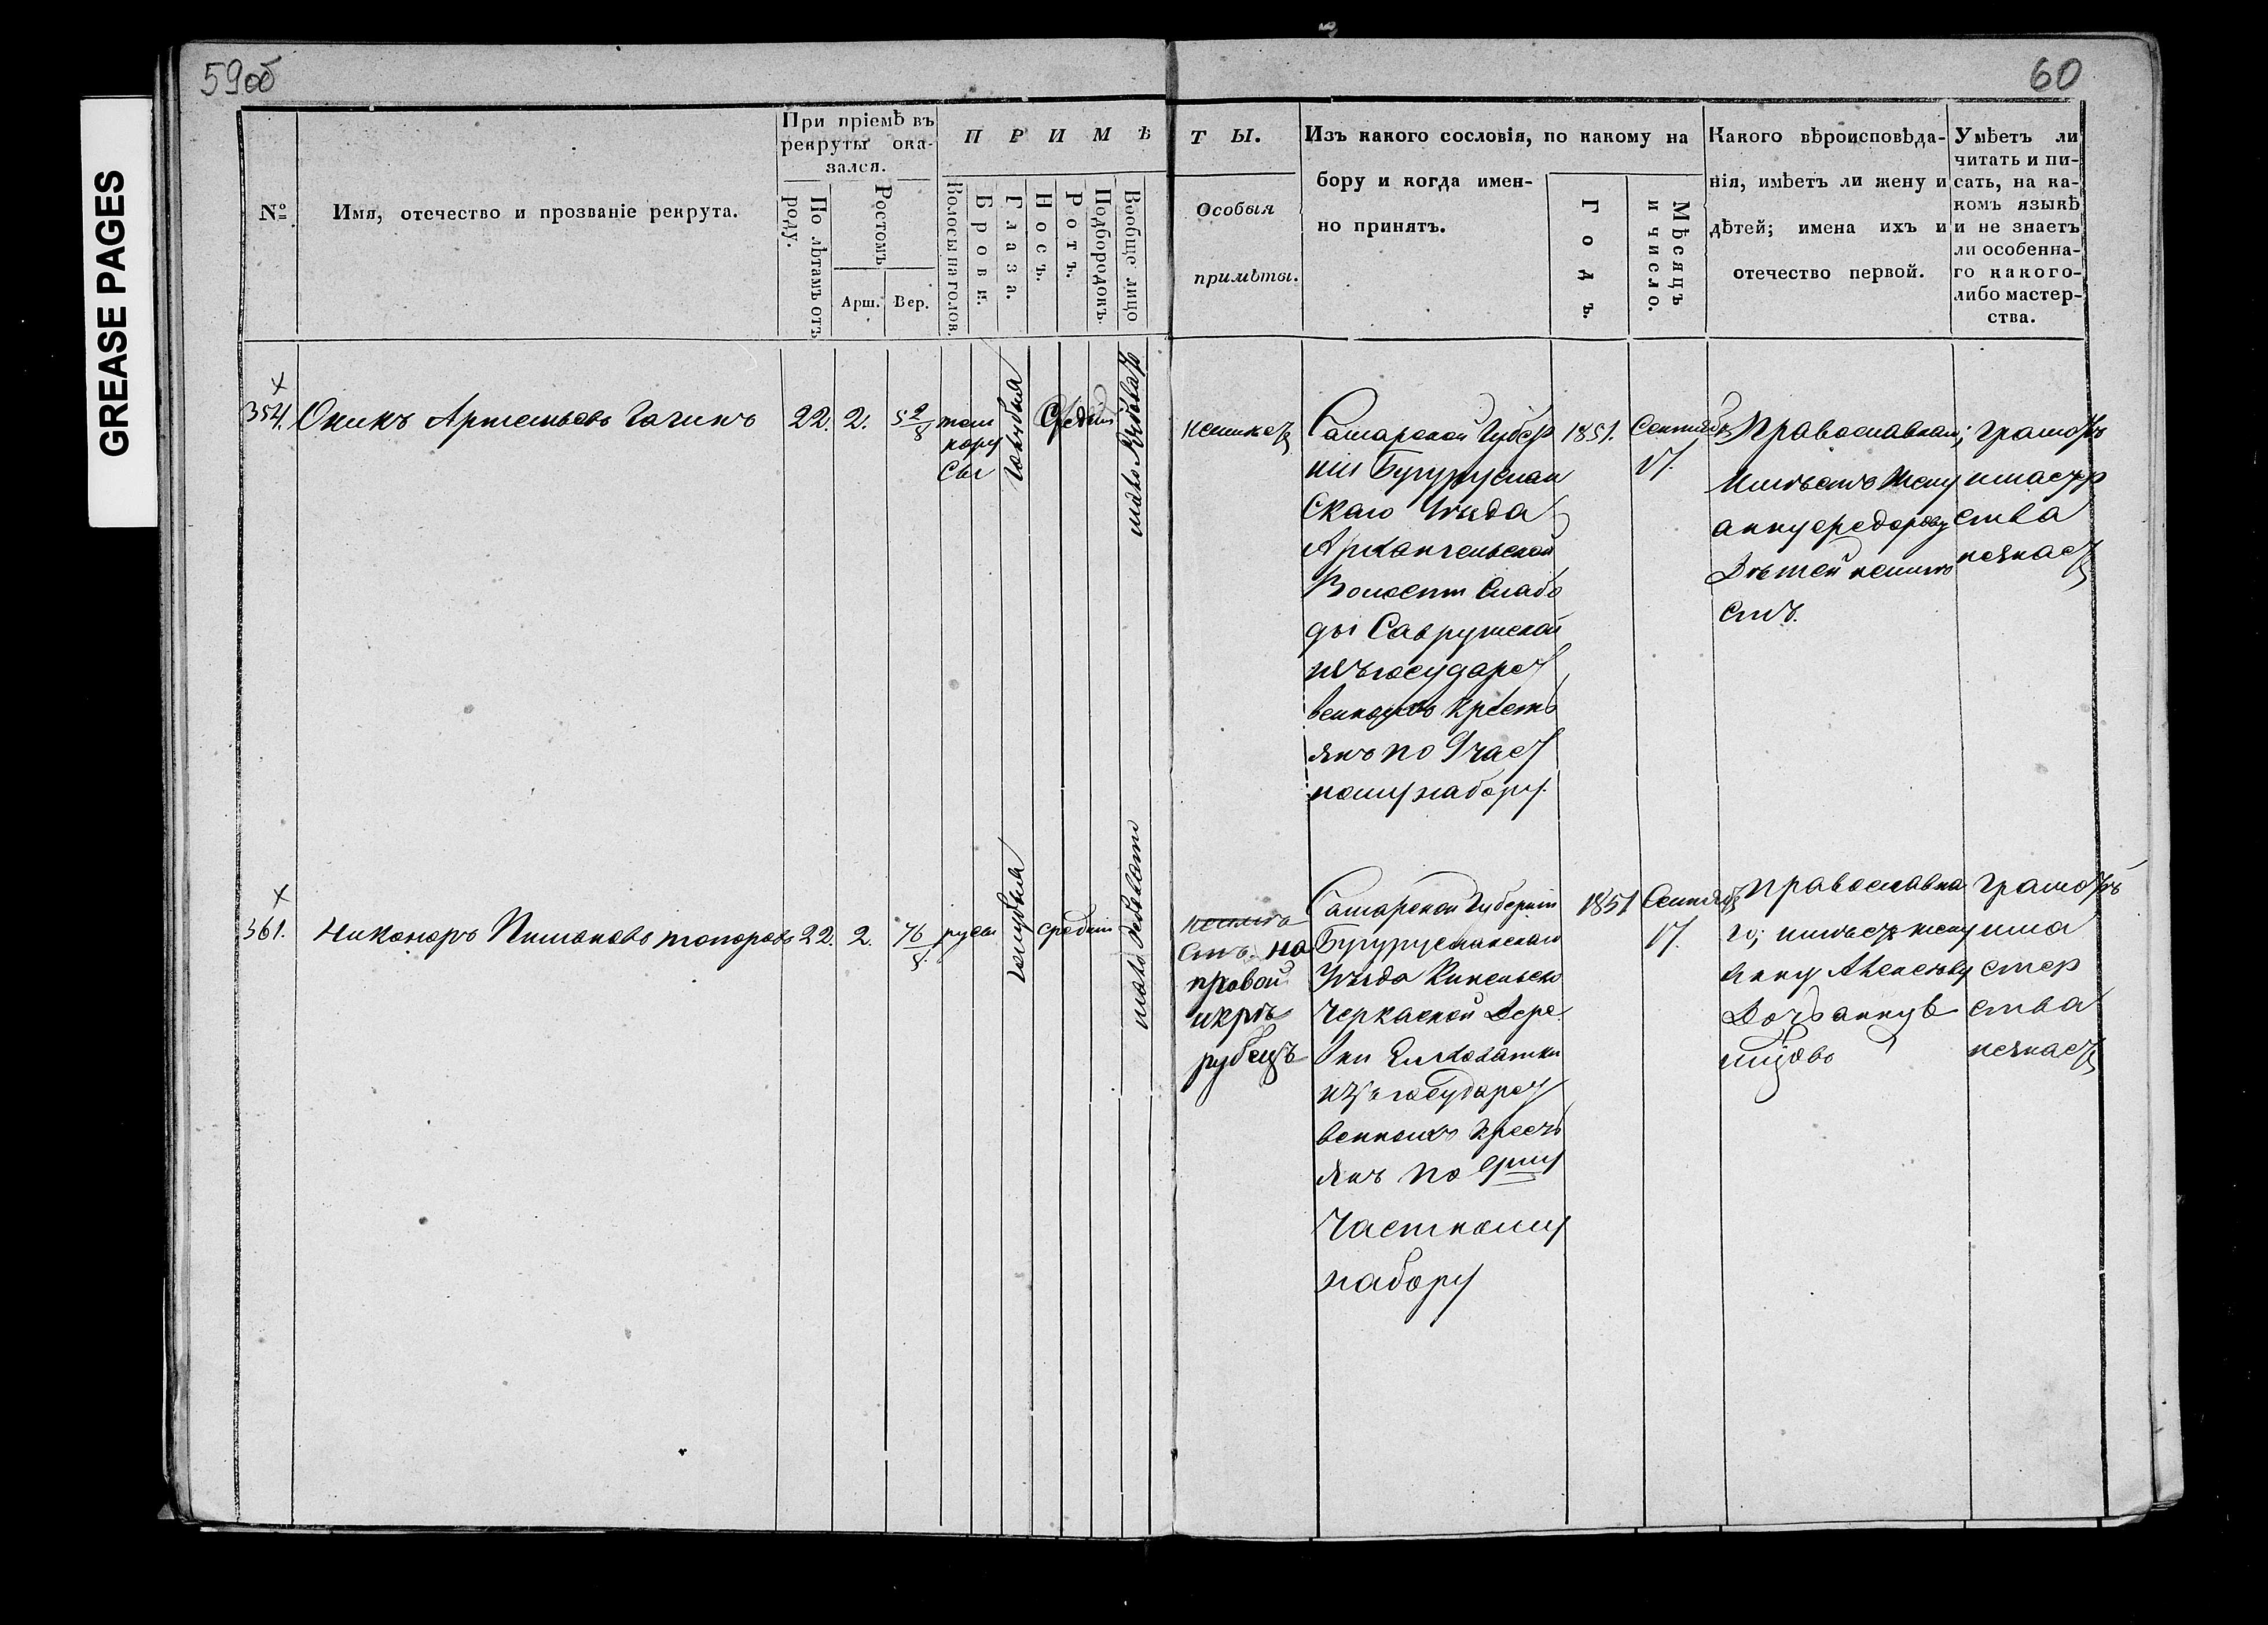 59об
60
GREASE PAGES
№
Имя, отечество и прозваніе рекрута.
При пріемѣ въ
рекруты ока-
зался.
По лѣтамъ отъ
роду.
Ростомъ
Арш.
Вер.
ПРИМѢ
ТЫ.
Волосы на голов.
Брови.
Глаза.
Носъ.
Ротъ.
Подбородокъ.
Вообще лицо
Особыя
примѣты.
Изъ какого сословія, по какому на
бору и когда имен-
но принятъ.
Годъ.
Мѣсяцъ
и число.
Какого вѣроисповѣда-
нія, имѣетъ ли жену и
дѣтей; имена ихъ и
отечество первой.
Умѣетъ ли
читать и пи-
сать, на ка-
комъ языкѣ
и не знаетъ
ли особенна-
го какого-
либо мастер-
ства.
354.
22.
2.
5 2/8
темн
Средній
неимѣетъ
Самарской Губер
ніи Бугуруслан
скаго Уѣзда
Архангельской
Волости Слабо
ды Саврушской
изъ государст
венныхъ крестъ
янъ по 9 част
ному набору.
1851.
Сентября
17.
Православнаго;
Имѣетъ жену
анну федорову
Дѣтей неимѣ
етъ.
грамотѣ
имастер
ства
незнаетъ
361.
Никаноръ топоровъ
22.
2.
русы
средній
неимѣ
етъ. на
правой
икрѣ
рубецъ
Самарской Губерніи
Бугурусланскаго
Уѣзда Кинельско
Черкаской Дере
вни
изъ государст
венныхъ крестъ
янъ по 9му
Частному
набору
1851
Сентября
17.
Православна
го; имѣетъ жену
Анну Алексѣеву
Дочь анну в
грамотѣ
има
стер
ства
незнаетъ